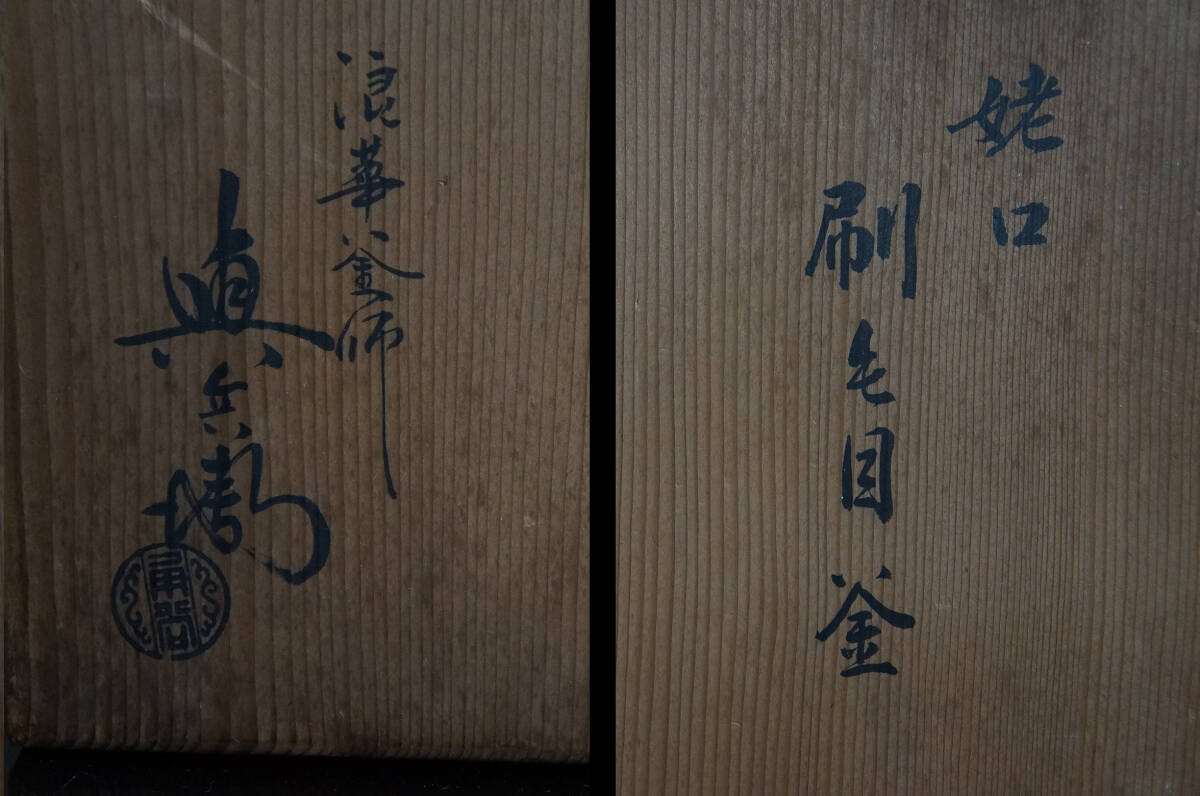 姥口
刷毛目釜
浪華釜師
與兵衛